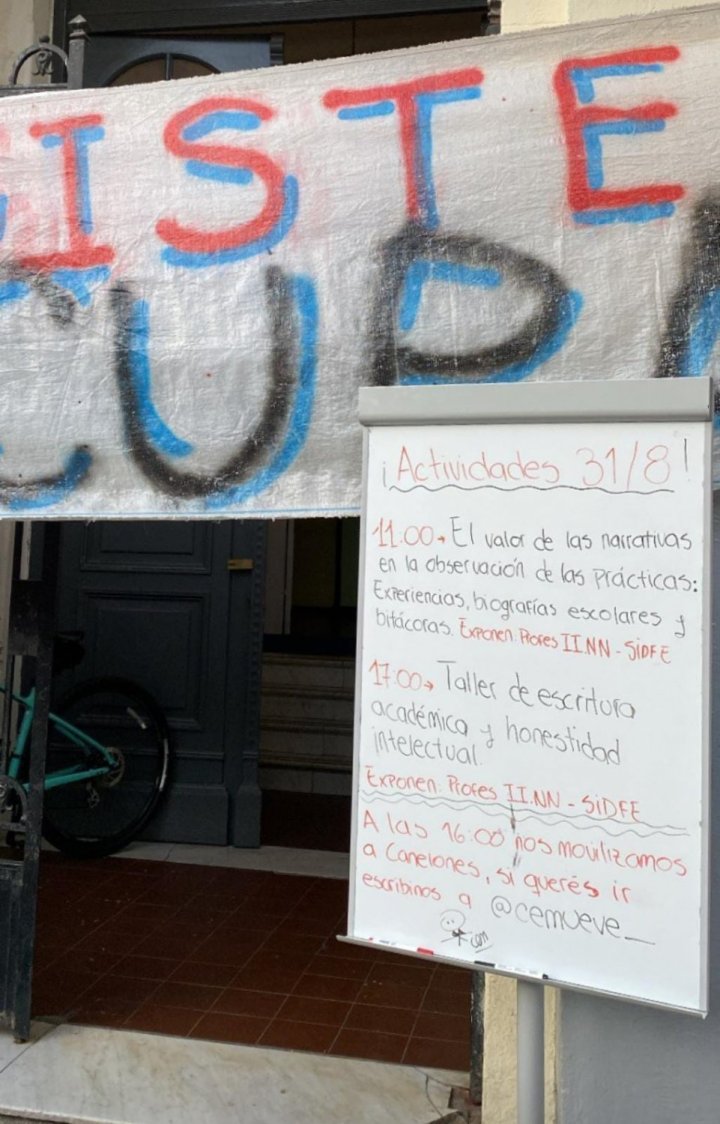 ISTE
CUPA
¡Actividades 31/8!
11:00→ El valor de las narrativas
en la observación de las prácticas:
Experiencias, biografías escolares y
bitácoras. Exponen: Profes II.NN - SiDFE
17:00→ Taller de escritura
académica y honestidad
intelectual.
Exponen: Profes II.NN - SiDFE
A las 16:00 nos movilizamos
a Canelones, si querés ir
escribinos a @cemueve_